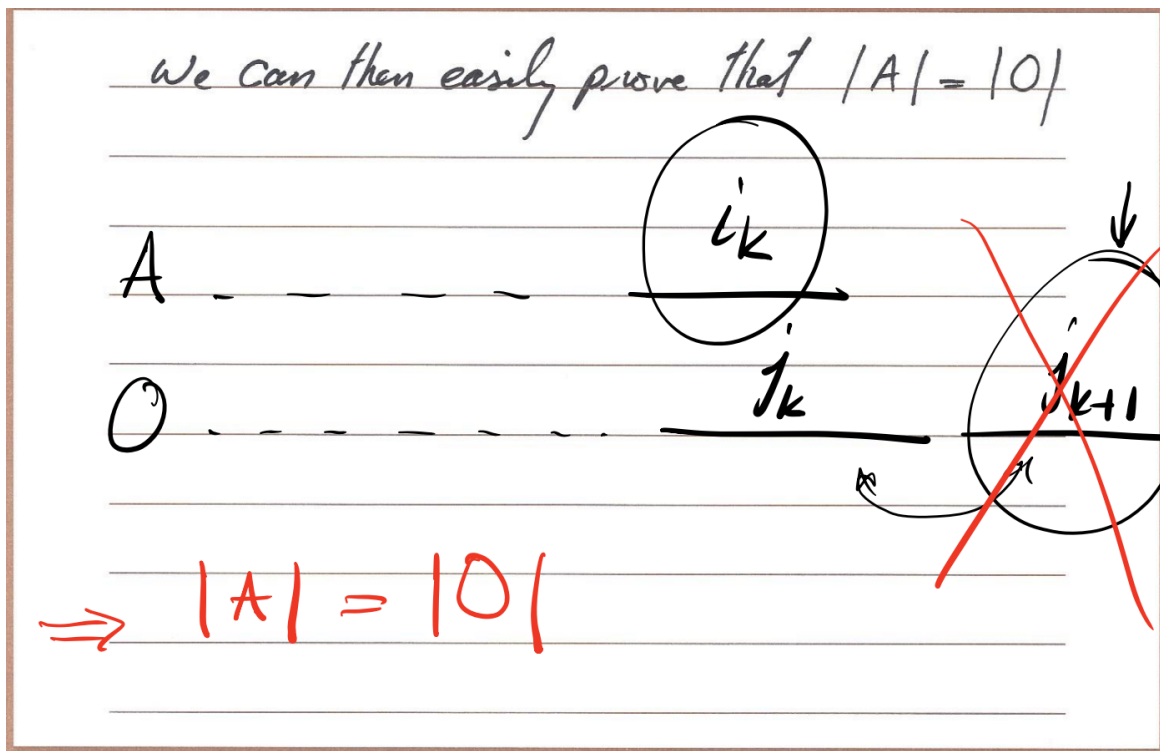 We can then easily prove that |A| = |O|
A i_k
O j_k j_{k+1}
⇒ |A| = |O|